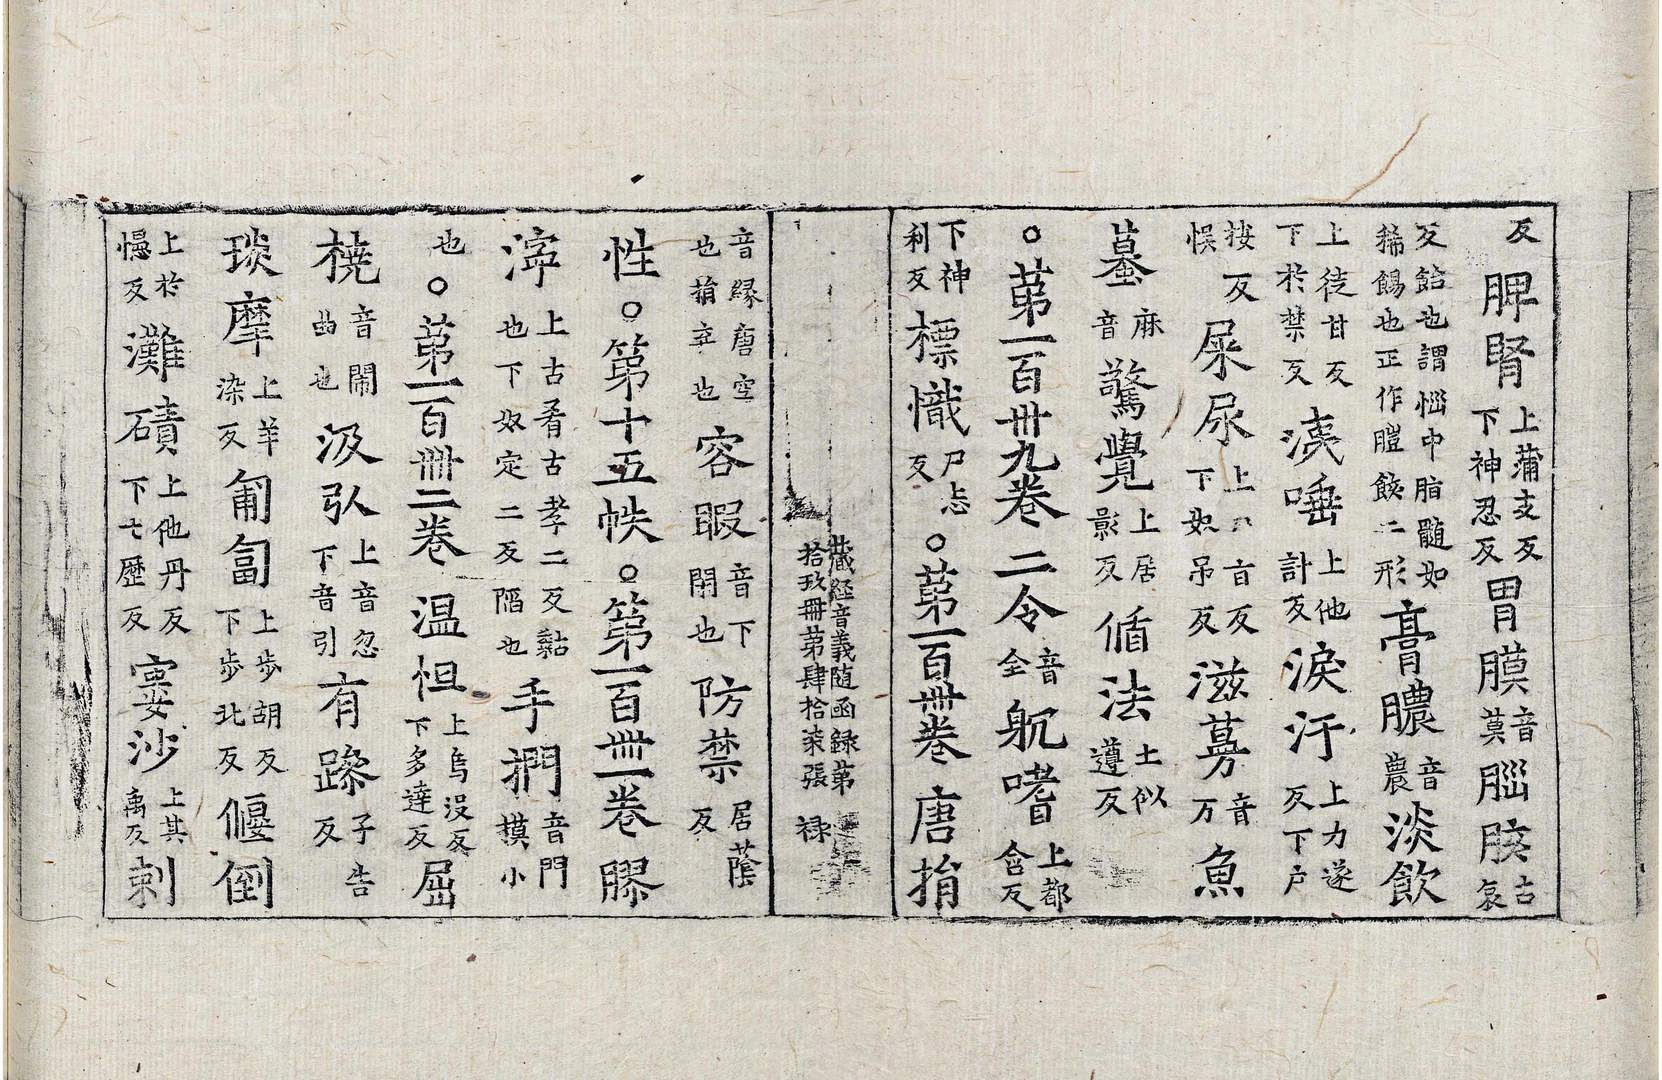 反 脾腎 上蒲支反下神忍反 胃膜 音莫 𦛁胲 古哀
反飴也謂𢙉中脂髓如稀餳也正作䐩餩二形 膏膿 音農 淡飲
上徒甘反下於禁反 洟唾 上他計反 淚汗 上力遂反下戶
按反 屎尿 下如吊反 滋蔓 音万 魚
蟇 音麻 驚覺 上居影反 循法 上似遵反
○苐一百卅九卷 二令 音全 躭嗜 上都含反
下神利反 標幟 尸志反 ○苐一百卌卷 唐捐
藏經音義隨函録苐拾玖冊苐肆拾柒張 禄
音縁唐空也捐弃也 容暇 音下閑也 防禁 居蔭反
性 ○第十五帙 ○第一百卌一卷 膠
濘 上古肴古孝二反黏也下奴定二反䧟也 手捫 音門摸小
也 ○苐一百卌二卷 温怛 上烏没反下多達反 屈
橈 音閙曲也 汲引 上音忽下音引 有躁 子告反
琰摩 上羊染反 匍匐 上步胡反下步北反 偃倒
上於幰反 灘磧 上他丹反下七歷反 寠沙 上其禹反 刺